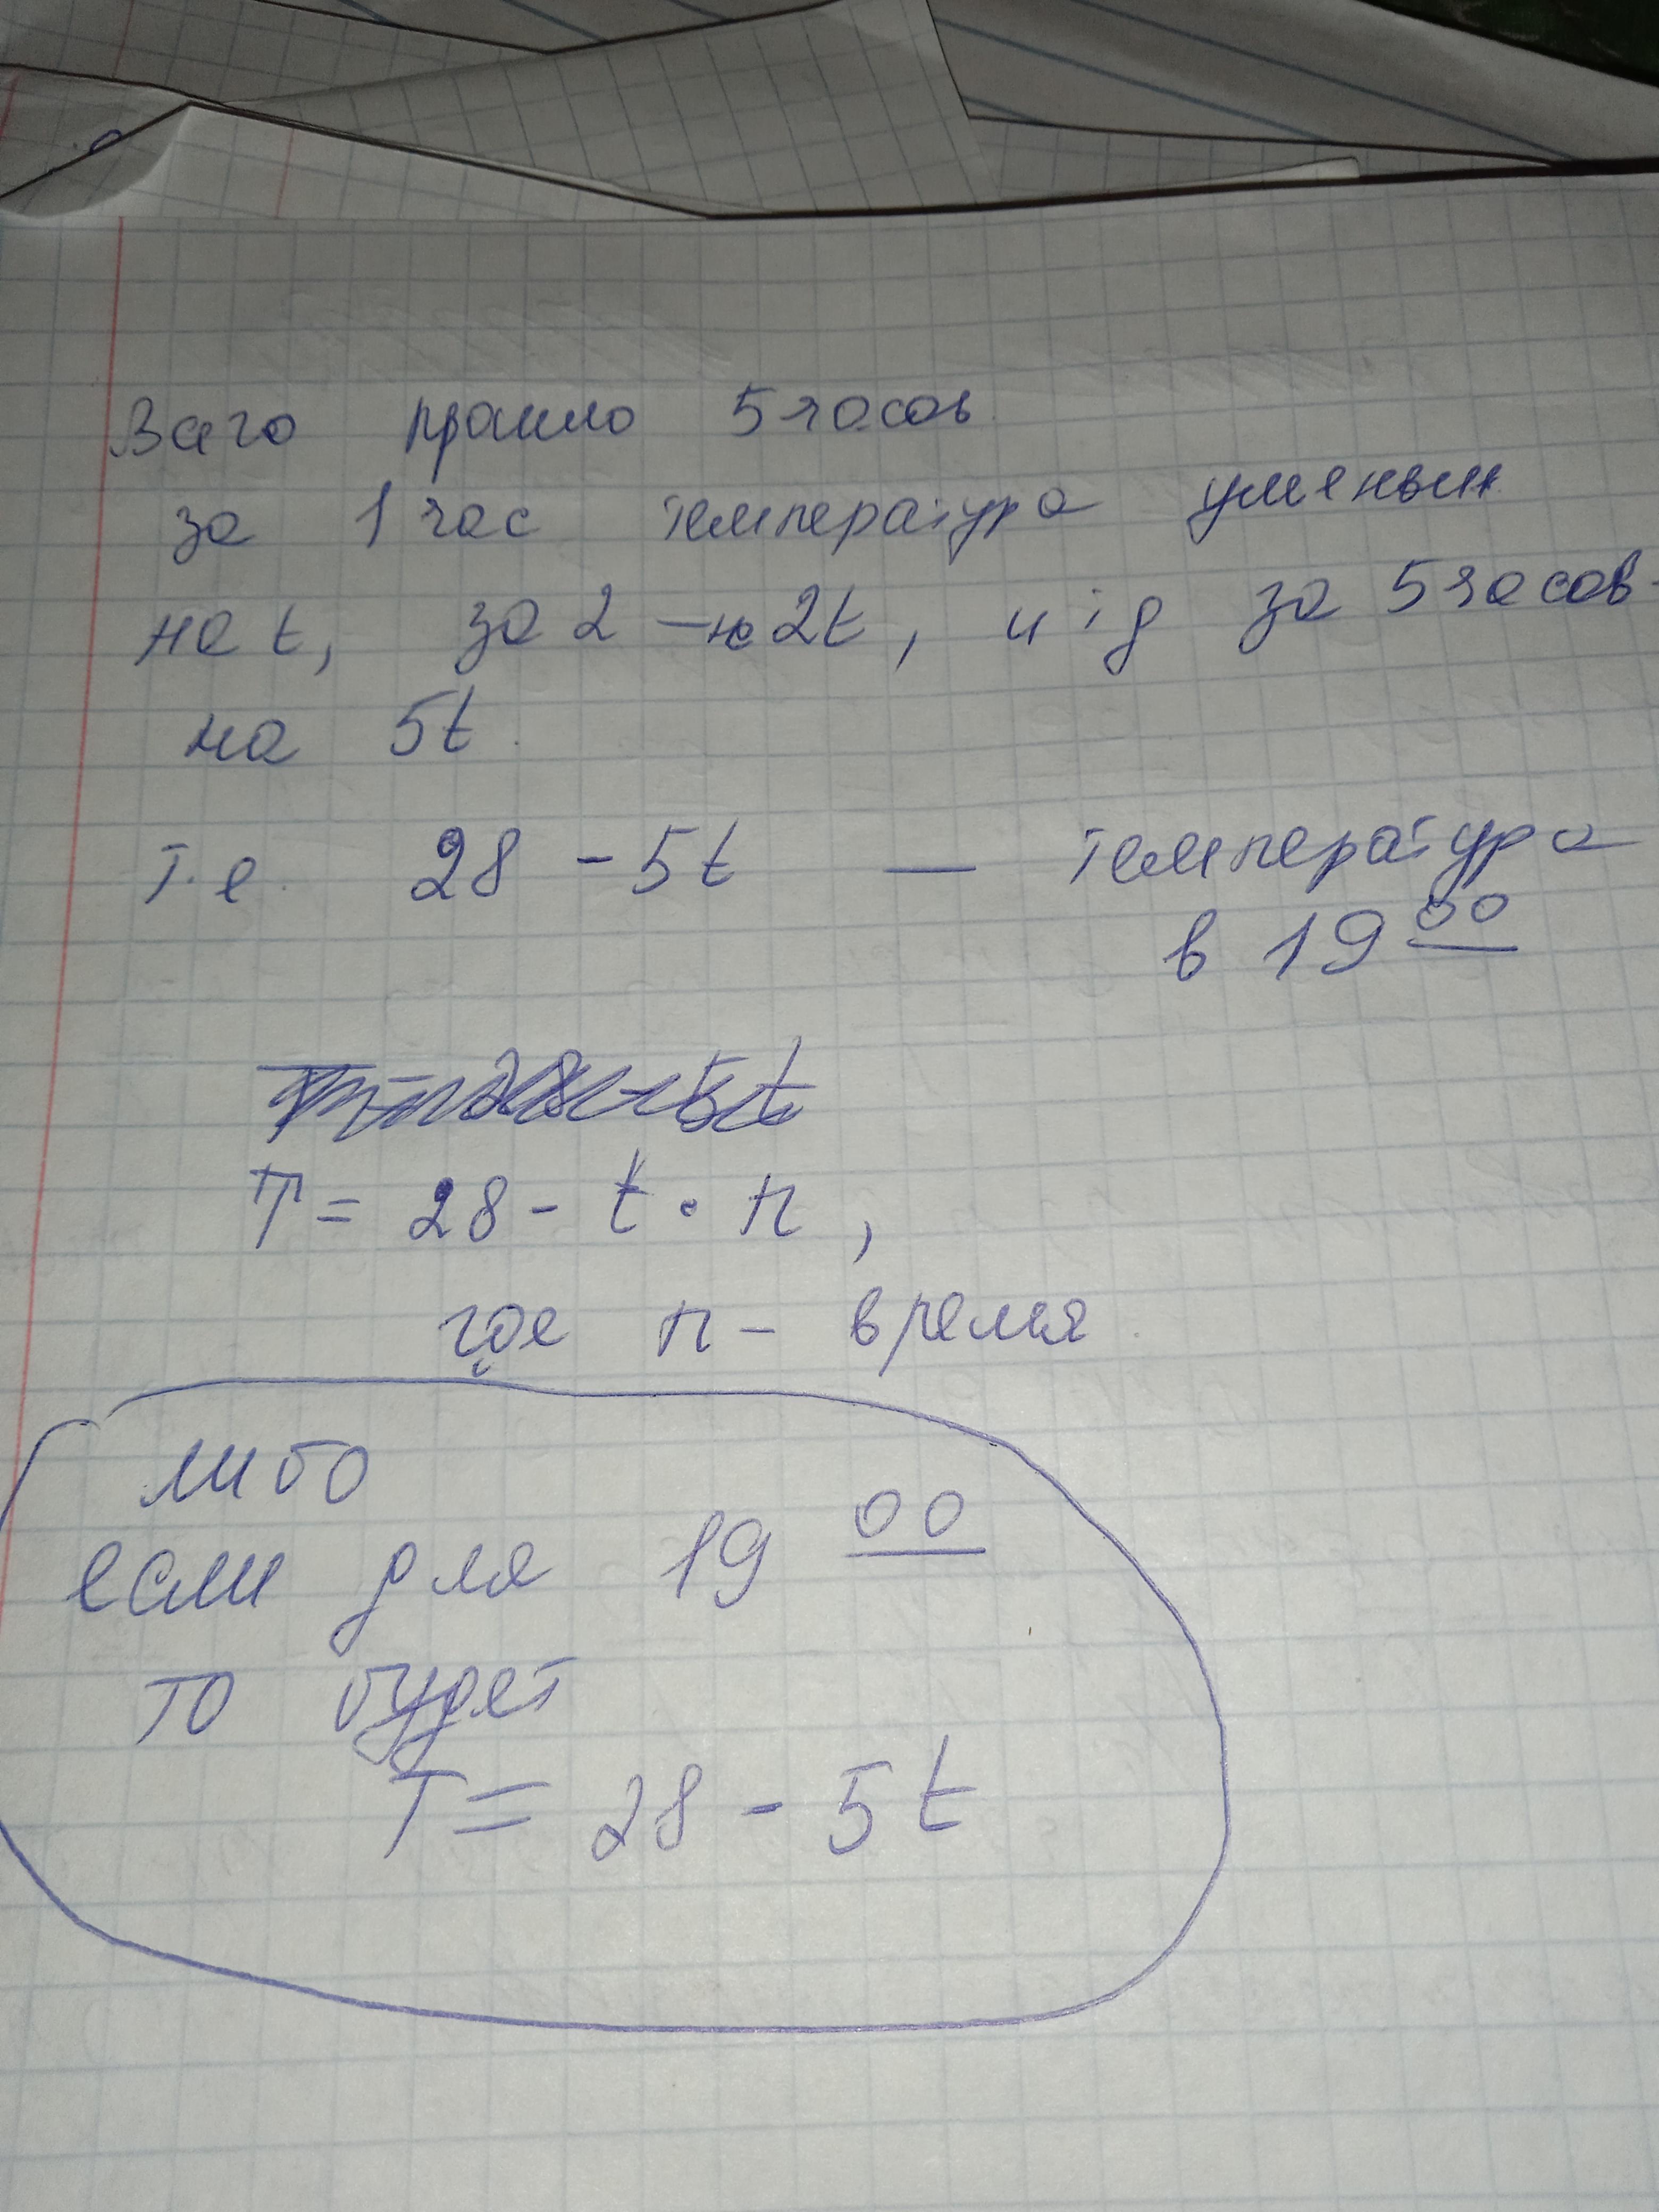 Всего прошло 5 часов.
за 1 час температура уменьш.
на t, за 2 – на 2t, и т д за 5 часов -
на 5t.
т.е. 28 - 5t — температура
в 19 00
T = 28 - t · n ,
где n – время.
либо
если для 19 00
то будет
T = 28 - 5t